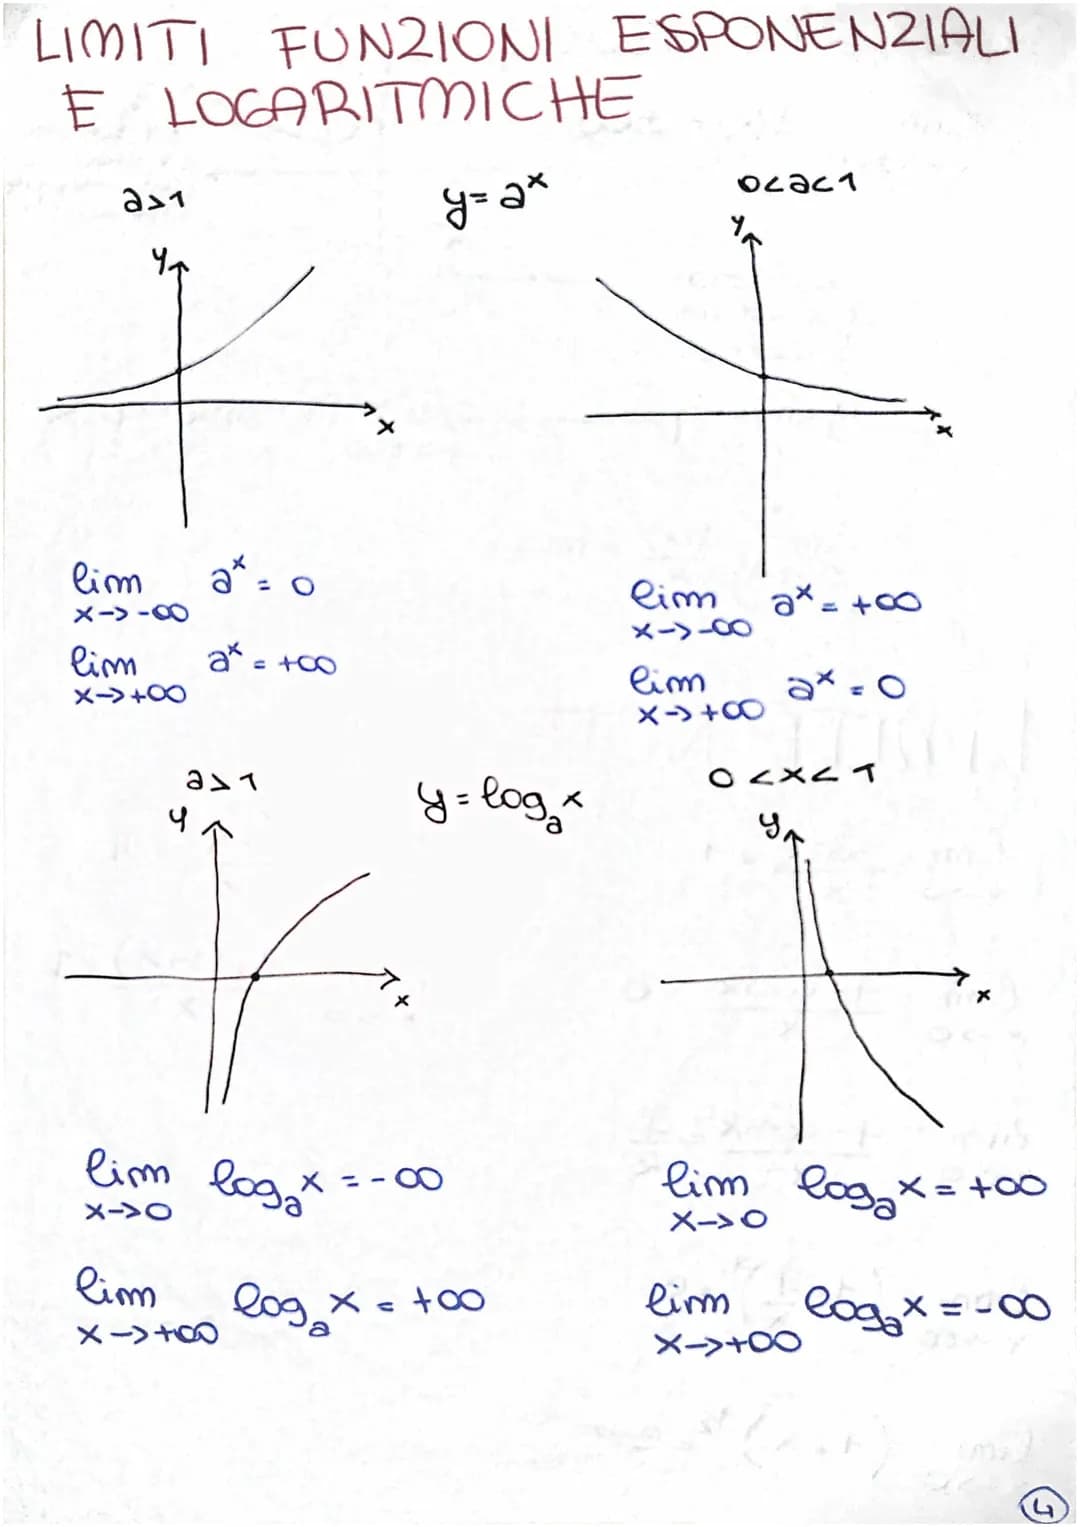 LIMITI FUNZIONI ESPONENZIALI
E LOGARITMICHE
a>1 y=aˣ 0<a<1
y y
x x
lim aˣ = 0
x->-∞
lim aˣ = +∞
x->+∞
lim aˣ = +∞
x->-∞
lim aˣ = 0
x->+∞
a>1 y=logₐx 0<x<1
y y
x x
lim logₐx = -∞
x->0
lim logₐx = +∞
x->+∞
lim logₐx = +∞
x->0
lim logₐx = -∞
x->+∞
4